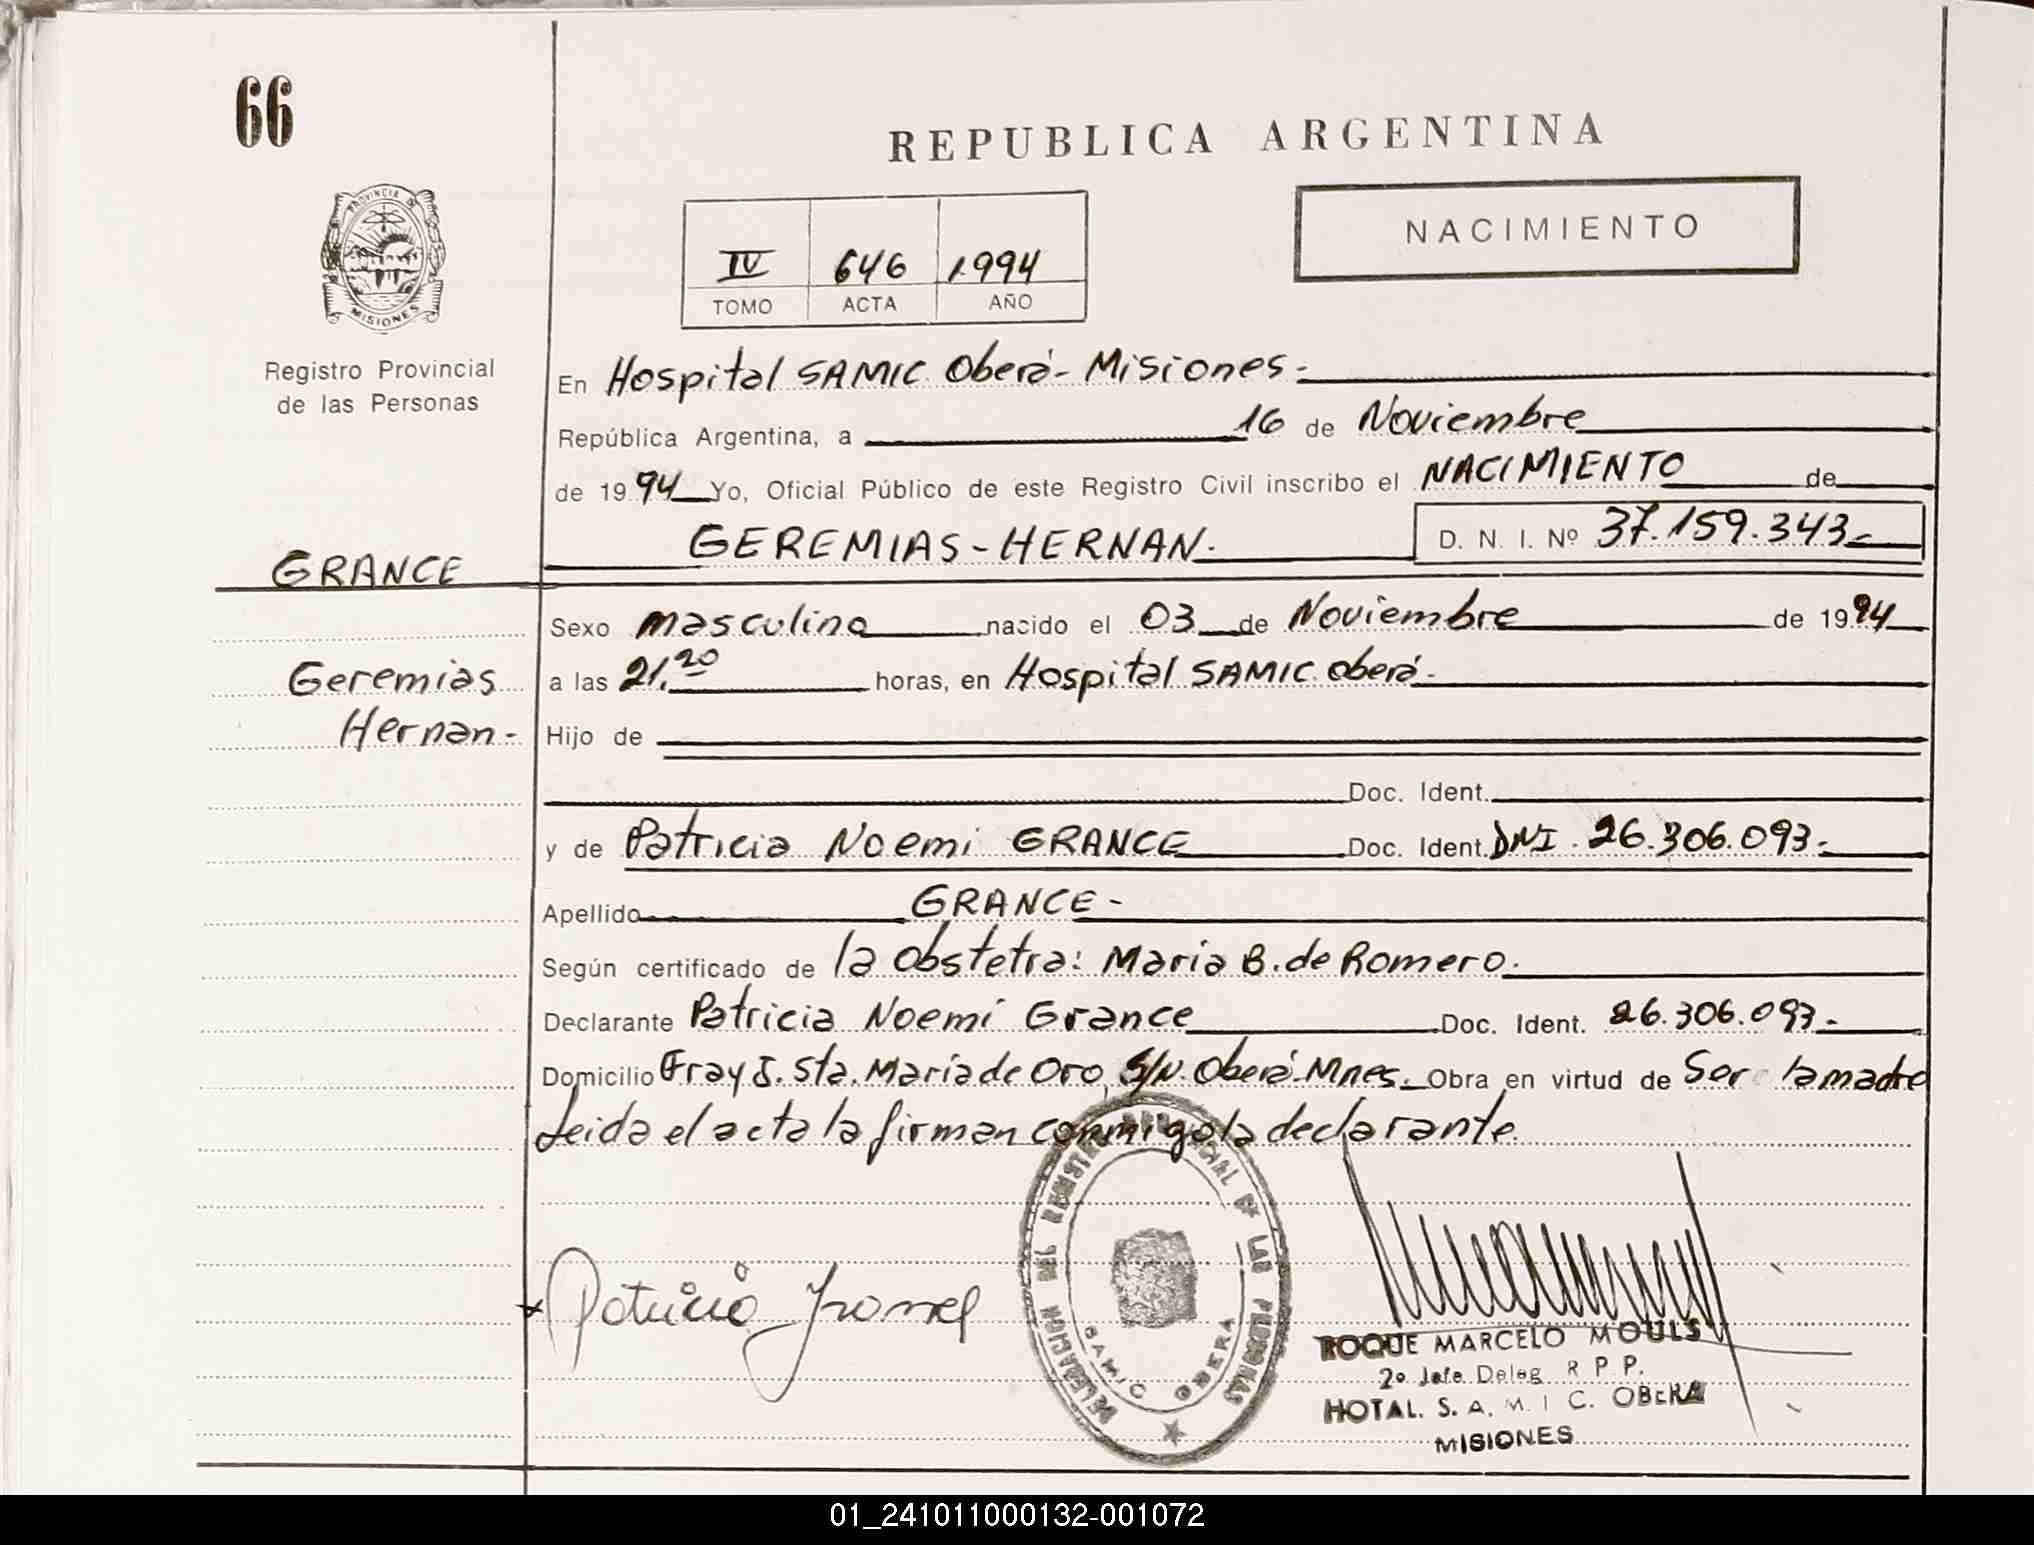 66
REPUBLICA ARGENTINA
PROVINCIA DE
MISIONES
NACIMIENTO
IV 646 1994
TOMO ACTA AÑO
Registro Provincial
de las Personas
En Hospital SAMIC Oberá - Misiones.-
República Argentina, a 16 de Noviembre
de 19 94 Yo, Oficial Público de este Registro Civil inscribo el NACIMIENTO de
GEREMIAS-HERNAN. D. N. I. Nº 37.159.343-
GRANCE
Sexo masculino nacido el 03 de Noviembre de 19 94
Geremias
Hernan-
a las 21,20 horas, en Hospital SAMIC Oberá-
Hijo de
Doc. Ident.
y de Patricia Noemi GRANCE Doc. Ident. DNI. 26.306.093.-
Apellido GRANCE-
Según certificado de la obstetra: Maria B. de Romero.
Declarante Patricia Noemí Grance Doc. Ident. 26.306.093.-
Domicilio Fray J. Sta. Maria de Oro, S/N. Oberá-Mnes. Obra en virtud de Ser la madre
Leida el acta la firman conmigo la declarante.
DELEGACION DEL REGISTRO PROVINCIAL DE LAS PERSONAS
SAMIC OBERA
Patricia
ROQUE MARCELO MOULS
2º Jefe Deleg R P P.
HOTAL. S. A. M. I C. OBERA
MISIONES
01_241011000132-001072